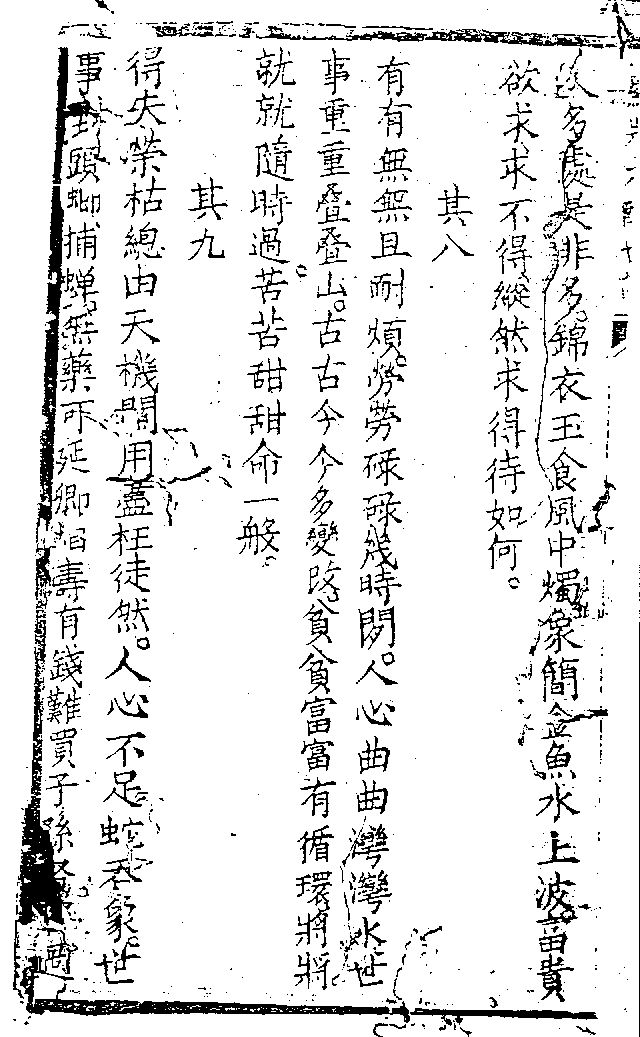 多處是非多。錦衣玉食風中燭象簡金魚水上波。富貴
欲求求不得縱然求得待如何。
其八
有有無無且耐煩。勞勞碌碌幾時閑。人心曲曲灣灣水。世
事重重叠叠山。古古今今多變改。貧貧富富有循環。將將
就就隨時過。苦苦甜甜命一般。
其九
得失榮枯總由天機關用蓋枉徒然。人心不足蛇吞象。世
事到頭螂捕蟬。無藥可延卿相壽有錢難買子孫